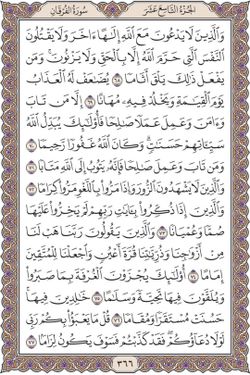 الجُزْءُ التَّاسِعَ عَشَرَ
سُورَةُ الفُرْقَانِ
وَٱلَّذِينَ لَا يَدْعُونَ مَعَ ٱللَّهِ إِلَٰهًا ءَاخَرَ وَلَا يَقْتُلُونَ
ٱلنَّفْسَ ٱلَّتِي حَرَّمَ ٱللَّهُ إِلَّا بِٱلْحَقِّ وَلَا يَزْنُونَۚ وَمَن
يَفْعَلْ ذَٰلِكَ يَلْقَ أَثَامًا ٦٨ يُضَٰعَفْ لَهُ ٱلْعَذَابُ
يَوْمَ ٱلْقِيَٰمَةِ وَيَخْلُدْ فِيهِۦ مُهَانًا ٦٩ إِلَّا مَن تَابَ
وَءَامَنَ وَعَمِلَ عَمَلًا صَٰلِحًا فَأُو۟لَٰٓئِكَ يُبَدِّلُ ٱللَّهُ
سَيِّـَٔاتِهِمْ حَسَنَٰتٍۗ وَكَانَ ٱللَّهُ غَفُورًا رَّحِيمًا ٧٠
وَمَن تَابَ وَعَمِلَ صَٰلِحًا فَإِنَّهُۥ يَتُوبُ إِلَى ٱللَّهِ مَتَابًا ٧١
وَٱلَّذِينَ لَا يَشْهَدُونَ ٱلزُّورَ وَإِذَا مَرُّوا۟ بِٱللَّغْوِ مَرُّوا۟ كِرَامًا ٧٢
وَٱلَّذِينَ إِذَا ذُكِّرُوا۟ بِـَٔايَٰتِ رَبِّهِمْ لَمْ يَخِرُّوا۟ عَلَيْهَا
صُمًّا وَعُمْيَانًا ٧٣ وَٱلَّذِينَ يَقُولُونَ رَبَّنَا هَبْ لَنَا
مِنْ أَزْوَٰجِنَا وَذُرِّيَّٰتِنَا قُرَّةَ أَعْيُنٍ وَٱجْعَلْنَا لِلْمُتَّقِينَ
إِمَامًا ٧٤ أُو۟لَٰٓئِكَ يُجْزَوْنَ ٱلْغُرْفَةَ بِمَا صَبَرُوا۟
وَيُلَقَّوْنَ فِيهَا تَحِيَّةً وَسَلَٰمًا ٧٥ خَٰلِدِينَ فِيهَاۚ
حَسُنَتْ مُسْتَقَرًّا وَمُقَامًا ٧٦ قُلْ مَا يَعْبَؤُا۟ بِكُمْ رَبِّي
لَوْلَا دُعَآؤُكُمْۖ فَقَدْ كَذَّبْتُمْ فَسَوْفَ يَكُونُ لِزَامًا ٧٧
٣٦٦